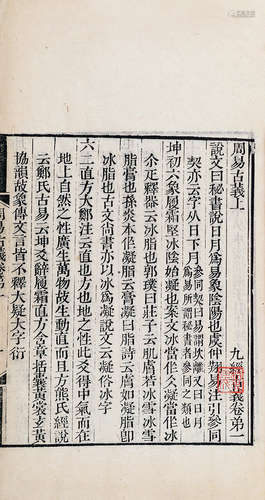 周易古義上 九經古義卷弟一
說文曰秘書說日月爲易象陰陽也虞仲翔易注引參同
契亦云字从日下月參同契曰易謂坎離又曰日月
爲易所謂秘書者參同之類也
坤初六象履霜堅冰陰始凝也案文冰當作仌凝當作冰
尒疋釋器云冰脂也郭璞曰莊子云肌膚若冰雪冰雪
脂膏也孫炎本作凝脂云膏凝曰脂詩云膚如凝脂卽
冰脂也古文尚書亦以冰爲凝說文云凝俗冰字
六二直方大鄭注云直也方也地之性此爻得中氣而在
地上自然之性廣生萬物故生動直而且方熊氏經說
云鄭氏古易云坤爻辭履霜直方含章括囊黃裳玄黃
協韻故象傳文言皆不釋大疑大字衍